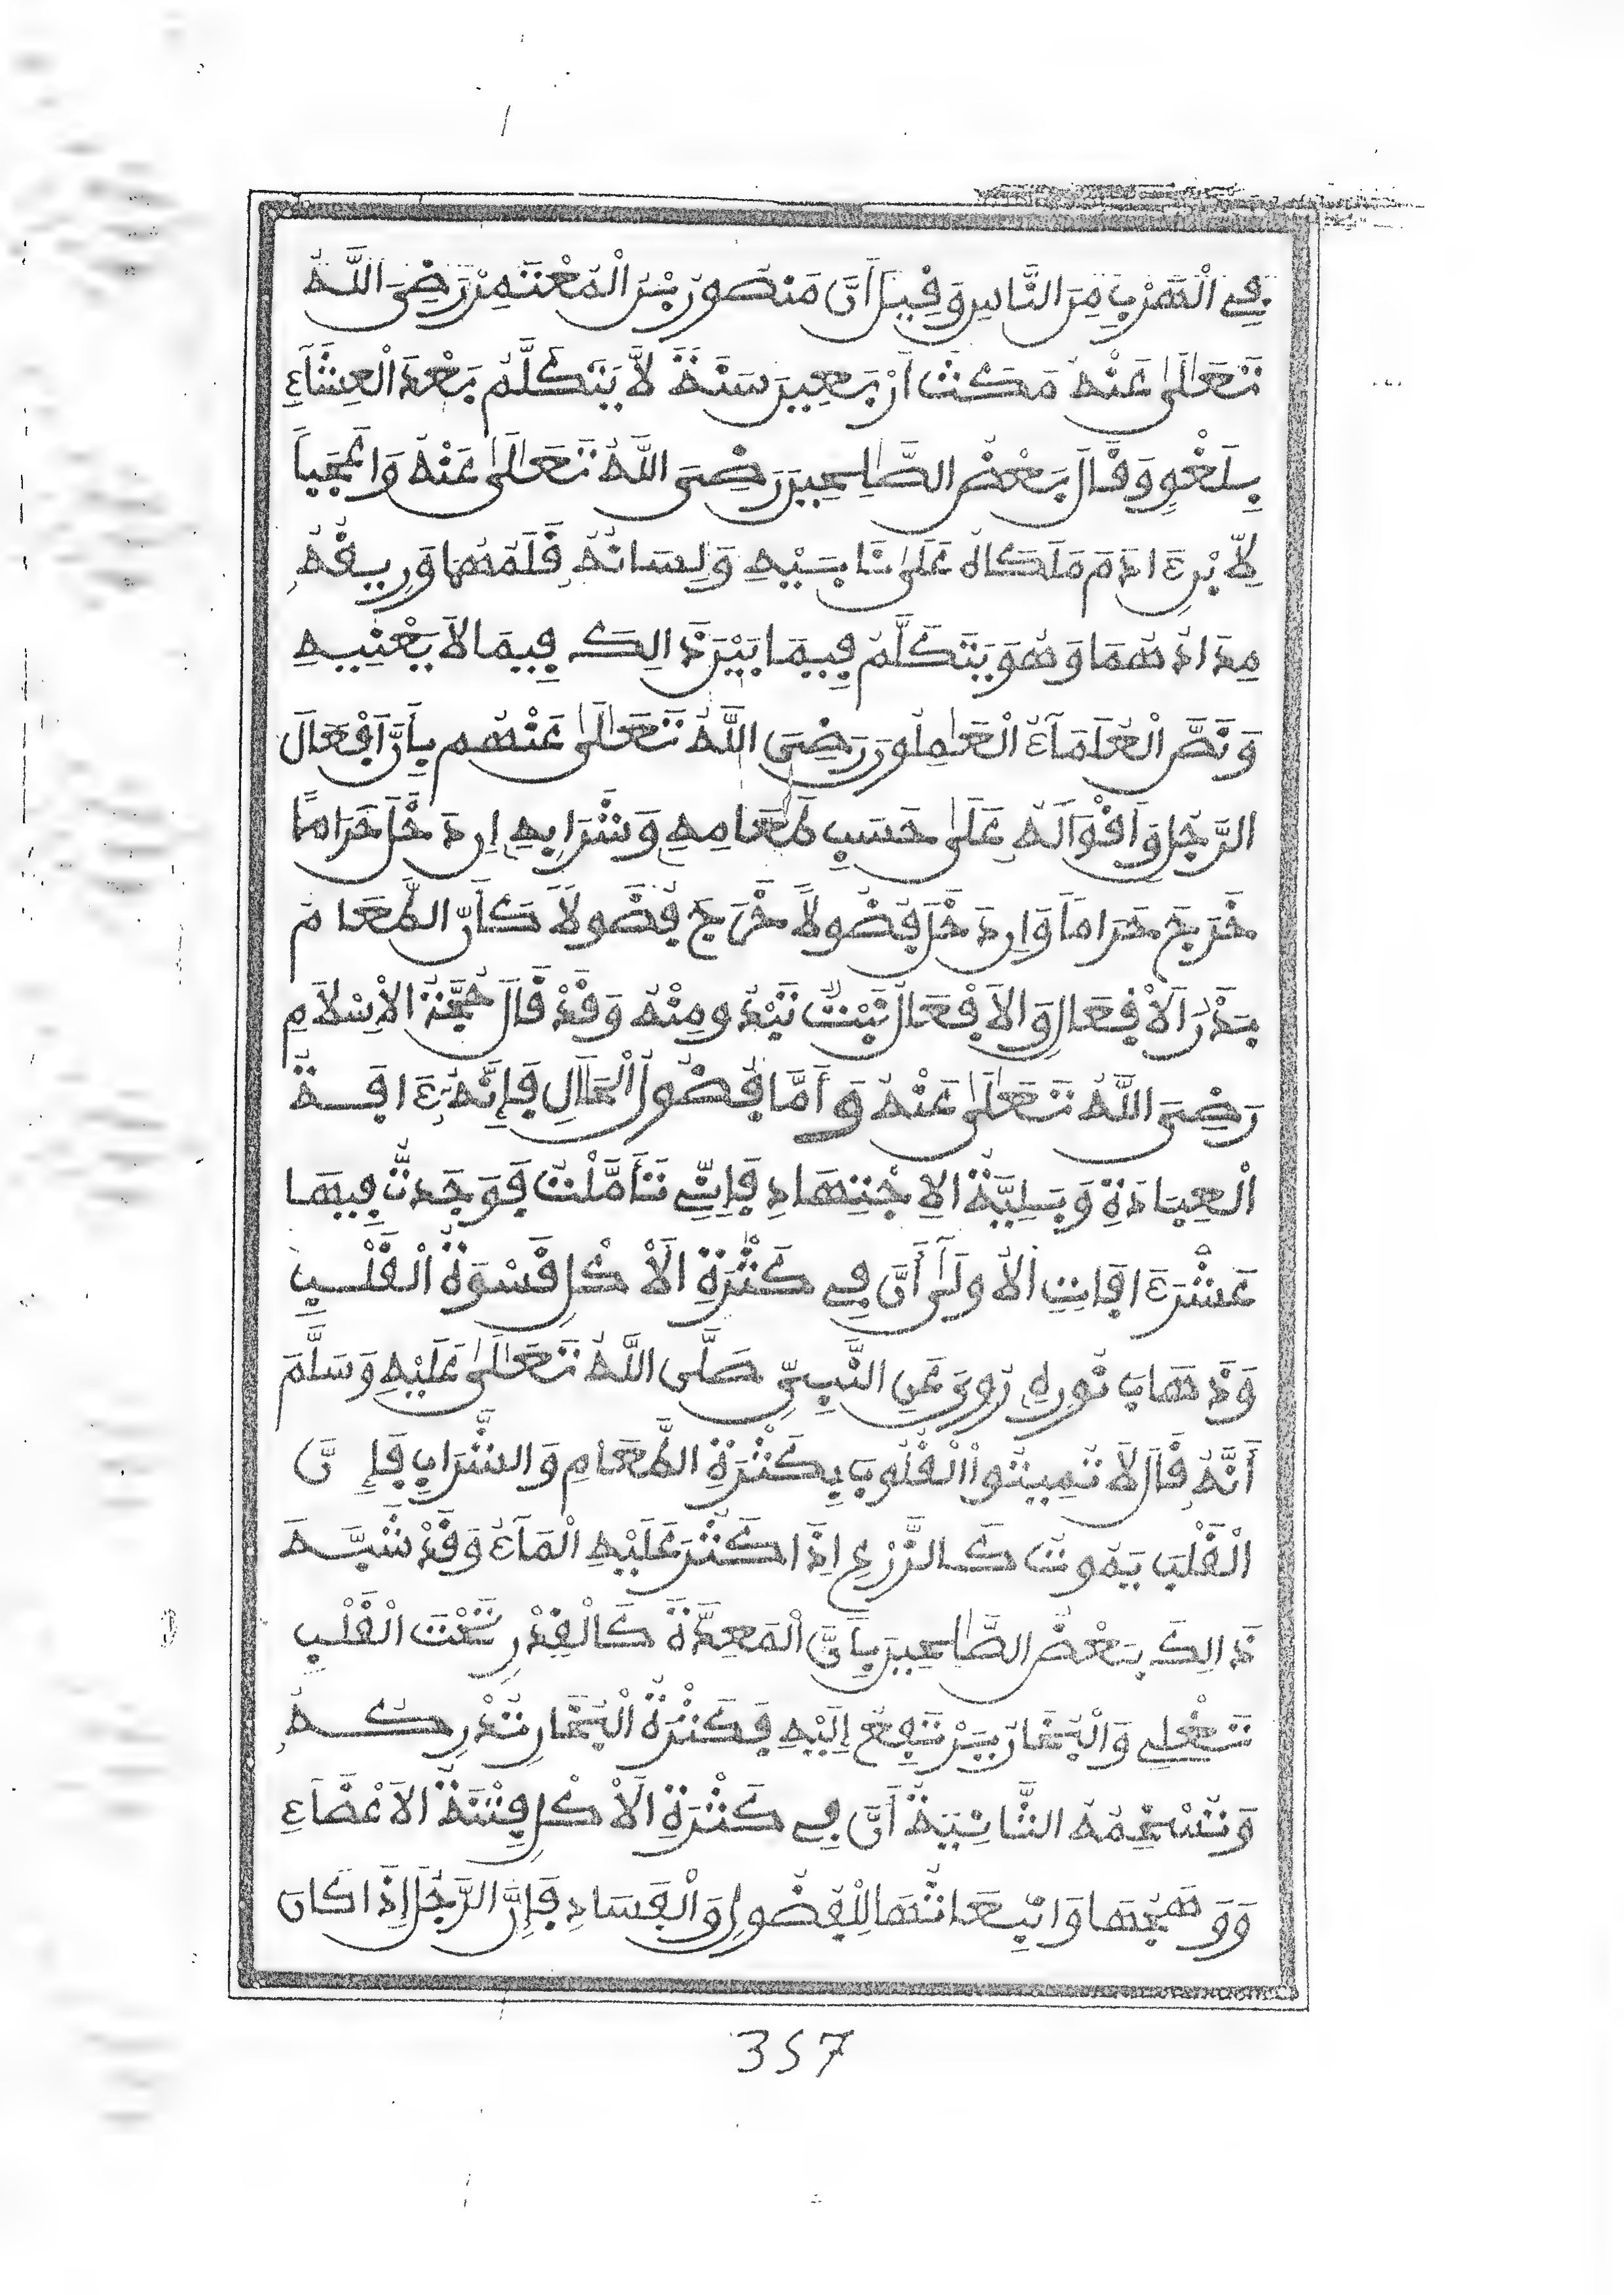 فِي الْهَرْبِ مِنَ النَّاسِ وَقِيلَ أَنَّ مَنْصُورَ بْنَ الْمُعْتَمِرْ رَضِيَ اللَّهُ
تَعَالَىٰ عَنْهُ مَكَثَ أَرْبَعِينَ سَنَةً لاَّ يَتَكَلَّمُ بَعْدَ الْعِشَآءِ
بِلَغْوٍ وَقَالَ بَعْضُ الصَّالِحِينَ رَضِيَ اللَّهُ تَعَالَىٰ عَنْهُ وَاعَجَباً
لاِّبْنِ ءَادَمَ مَلَكَاهُ عَلَىٰ نَابَيْهِ وَلِسَانُهُ قَلَمُهُمَا وَرِيقُهُ
مِدَادُهُمَا وَهُوَ يَتَكَلَّمُ فِيمَا بَيْنَ ذَالِكَ فِيمَا لاَ يَعْنِيهِ
وَنَصَّ الْعُلَمَآءُ الْعَامِلُونَ رَضِيَ اللَّهُ تَعَالَىٰ عَنْهُم بِأَنَّ أَفْعَالَ
الرَّجُلِ وَأَقْوَالَهُ عَلَىٰ حَسَبِ طَعَامِهِ وَشَرَابِهِ إِن دَخَلَ حَرَاماً
خَرَجَ حَرَاماً وَإِن دَخَلَ فُضُولاً خَرَجَ فُضُولاً كَأَنَّ الطَّعَامَ
بَذْرُ الأَفْعَالِ وَالأَفْعَالَ نَبْتٌ تَبْدُو مِنْهُ وَقَدْ قَالَ حُجَّةُ الإِسْلاَمِ
رَضِيَ اللَّهُ تَعَالَىٰ عَنْهُ وَأَمَّا فُضُولُ الْحَلاَلِ فَإِنَّهُ ءَافَةُ
الْعِبَادَةِ وَبَلِيَّةُ الاِجْتِهَادِ فَإِنِّي تَأَمَّلْتُ فَوَجَدتُّ فِيهَا
عَشْرَ ءَافَاتٍ الأُولَىٰ أَنَّ فِي كَثْرَةِ الأَكْلِ قَسْوَةُ الْقَلْبِ
وَذَهَابَ نُورِهِ رُوِيَ عَنِ النَّبِيِّ صَلَّى اللَّهُ تَعَالَىٰ عَلَيْهِ وَسَلَّمَ
أَنَّهُ قَالَ لاَ تُمِيتُوا الْقُلُوبَ بِكَثْرَةِ الطَّعَامِ وَالشَّرَابِ فَإِنَّ
الْقَلْبَ يَمُوتُ كَالزَّرْعِ إِذَا كَثُرَ عَلَيْهِ الْمَآءُ وَقَدْ شَبَّهَ
ذَالِكَ بَعْضُ الصَّالِحِينَ بِأَنَّ الْمَعِدَةَ كَالْقِدْرِ تَحْتَ الْقَلْبِ
تَغْلِي وَالْبُخَارُ يَرْتَفِعُ إِلَيْهِ فَكَثْرَةُ الْبُخَارِ تُدْرِكُهُ
وَتُسْخِمُهُ الثَّانِيَةُ أَنَّ فِي كَثْرَةِ الأَكْلِ فِتْنَةُ الأَعْضَآءِ
وَوَهَيْجُهَا وَانْبِعَاثُهَا لِلْفُضُولِ وَالْفَسَادِ فَإِنَّ الرَّجُلَ إِذَا كَانَ
357